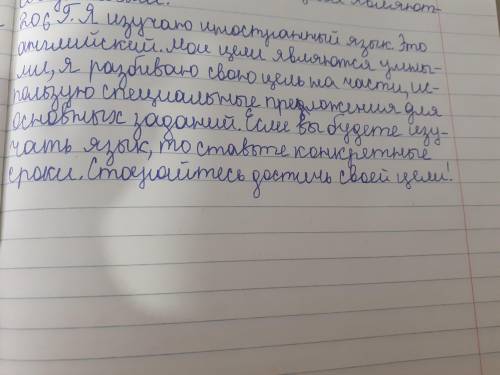 являют-
206 Г. Я изучаю иностранный язык. Это
английский. Мои цели являются умны-
ми, я разбиваю свою цель на части, ис-
пользую специальные предложения для
основных заданий. Если вы будете изу-
чать язык, то ставьте конкретные
сроки. Старайтесь достичь своей цели!